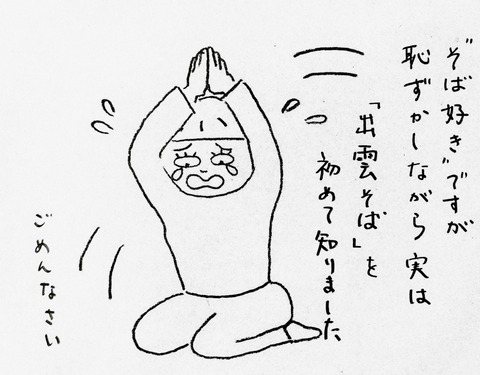 "そば好き"ですが
恥ずかしながら実は
「出雲そば」を
初めて知りました
ごめんなさい